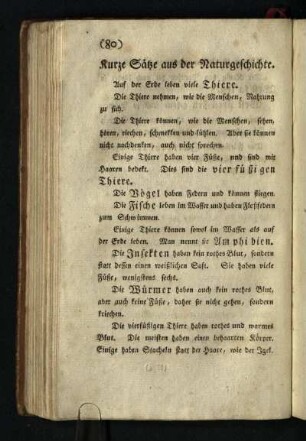 (80)
Kurze Sätze aus der Naturgeschichte.
Auf der Erde leben viele Thiere.
Die Thiere nehmen, wie die Menschen, Nahrung
zu sich.
Die Thiere können, wie die Menschen, sehen,
hören, riechen, schmecken und fühlen. Aber sie können
nicht nachdenken, auch nicht sprechen.
Einige Thiere haben vier Füße, und sind mit
Haaren bedekt. Dies sind die vierfüßigen
Thiere.
Die Vögel haben Federn und können fliegen.
Die Fische leben im Wasser und haben Floßfedern
zum Schwimmen.
Einige Thiere können sowol im Wasser als auf
der Erde leben. Man nennt sie Amphibien.
Die Insekten haben kein rothes Blut, sondern
statt dessen einen weißlichen Saft. Sie haben viele
Füße, wenigstens sechs.
Die Würmer haben auch kein rothes Blut,
aber auch keine Füße, daher sie nicht gehen, sondern
kriechen.
Die vierfüßigen Thiere haben rothes und warmes
Blut. Die meisten haben einen behaarten Körper.
Einige haben Stacheln statt der Haare, wie der Igel.